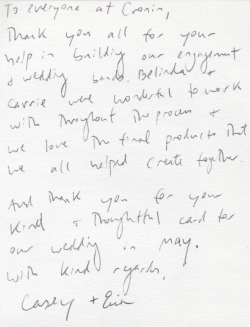 To everyone at Cronin,
Thank you all for your
help in building our engagement
+ wedding bands. Belinda +
Carrie were wonderful to work
with throughout the process +
we love the final products that
we all helped create together.
And thank you for your
kind + thoughtful card for
our wedding in May.
With kind regards,
Casey + Erin